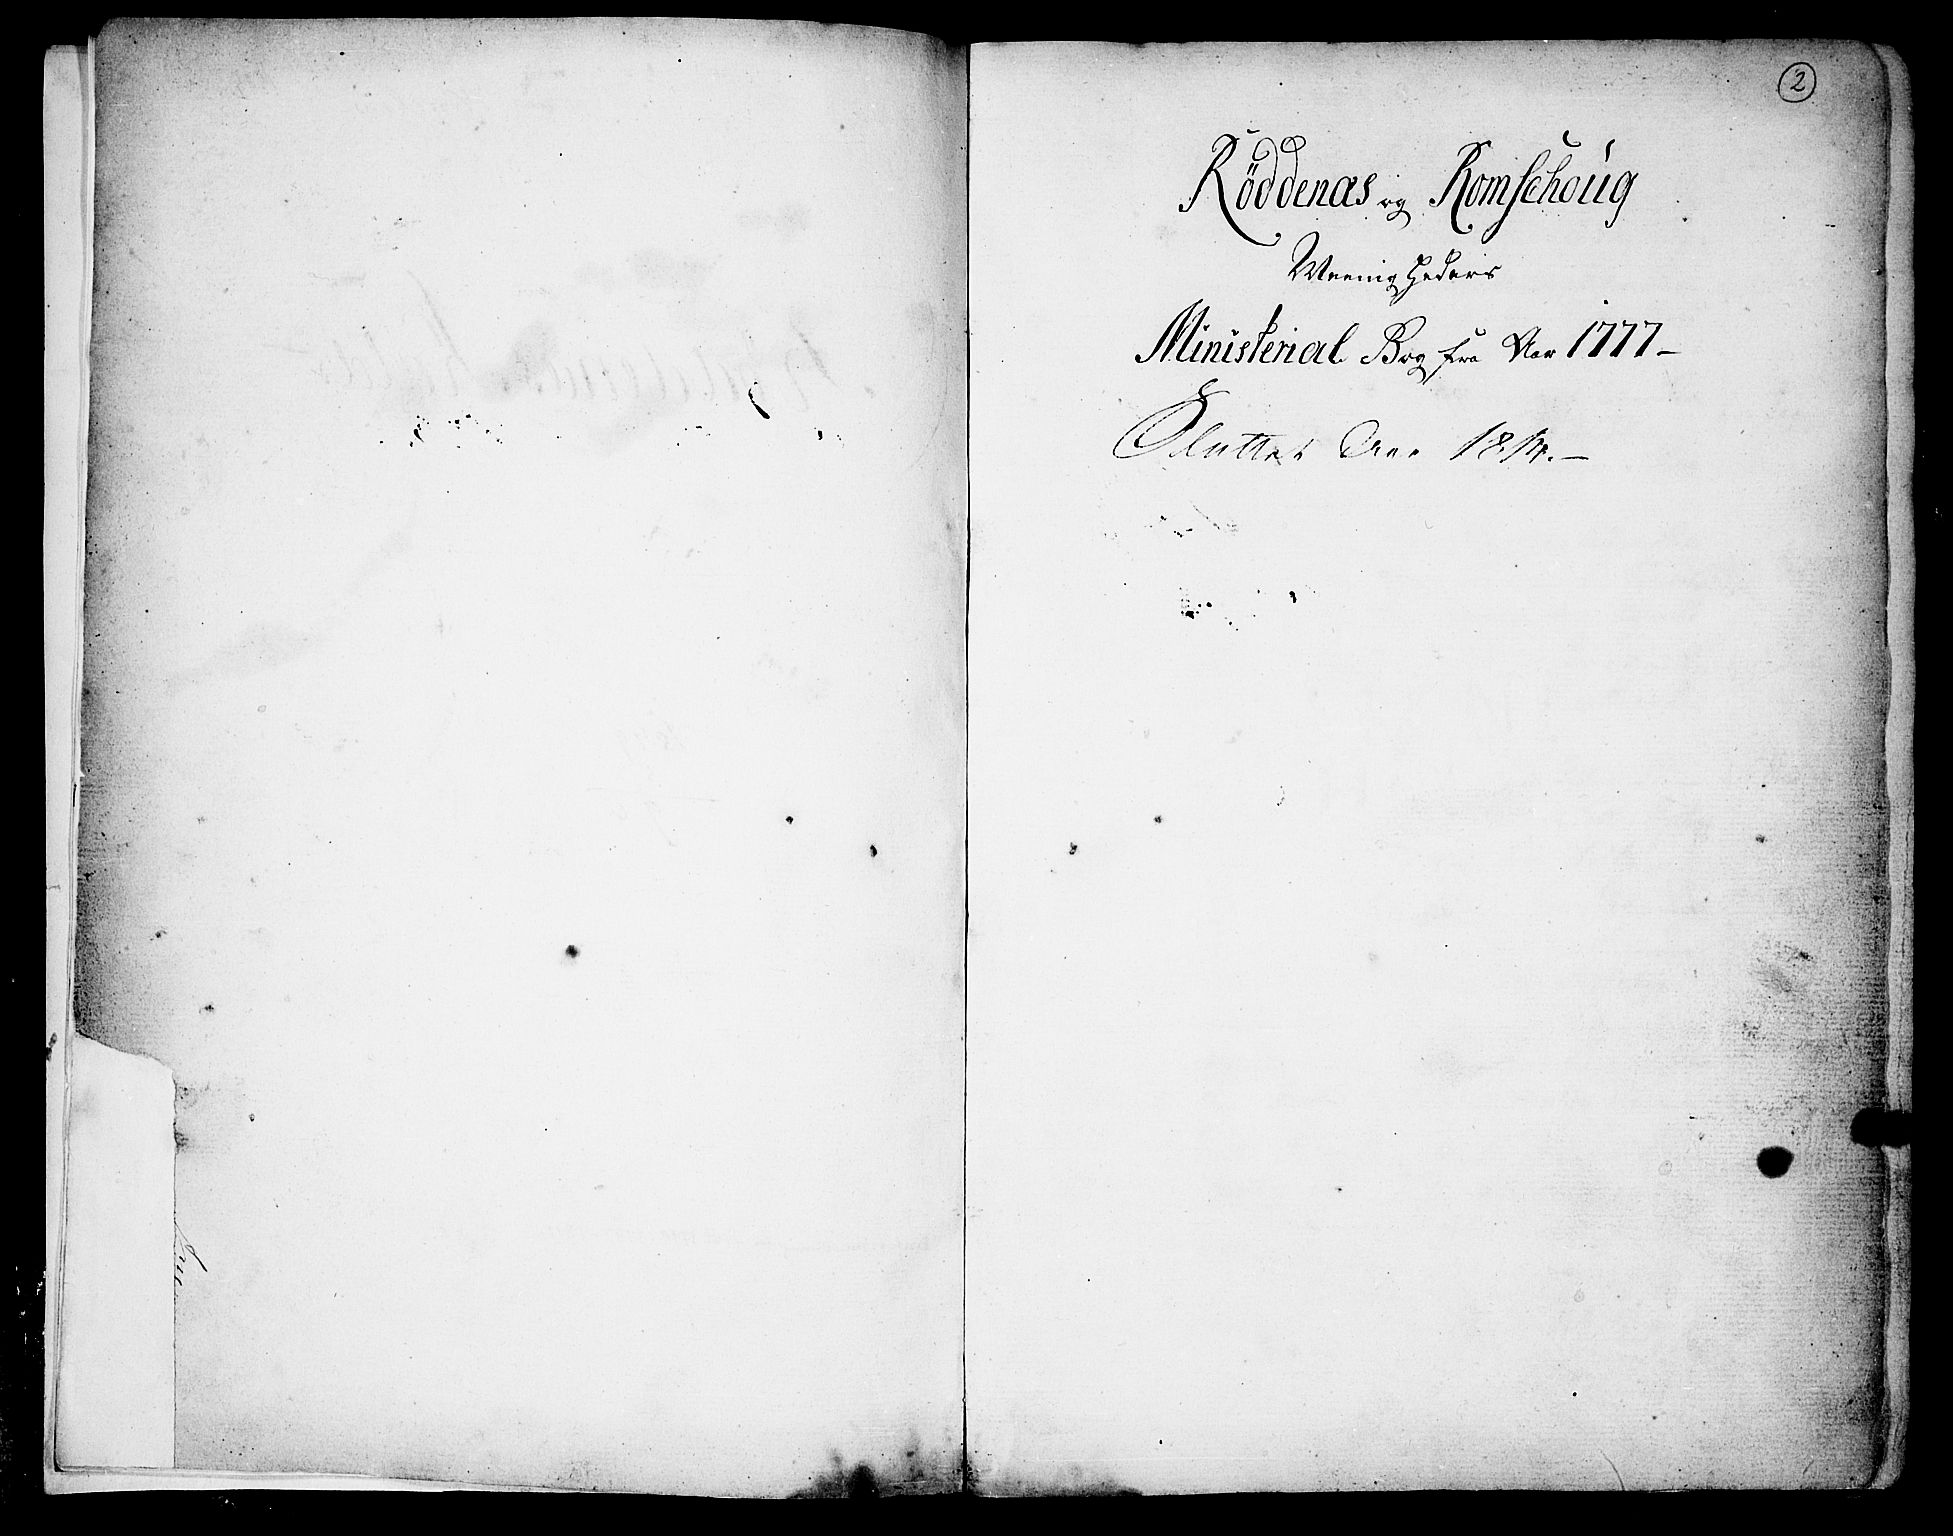 2
Röddenæs og Romschoug
Meenigheders
Ministerial Bog fra Aar 1777 –
Sluttet Aar 1814. –